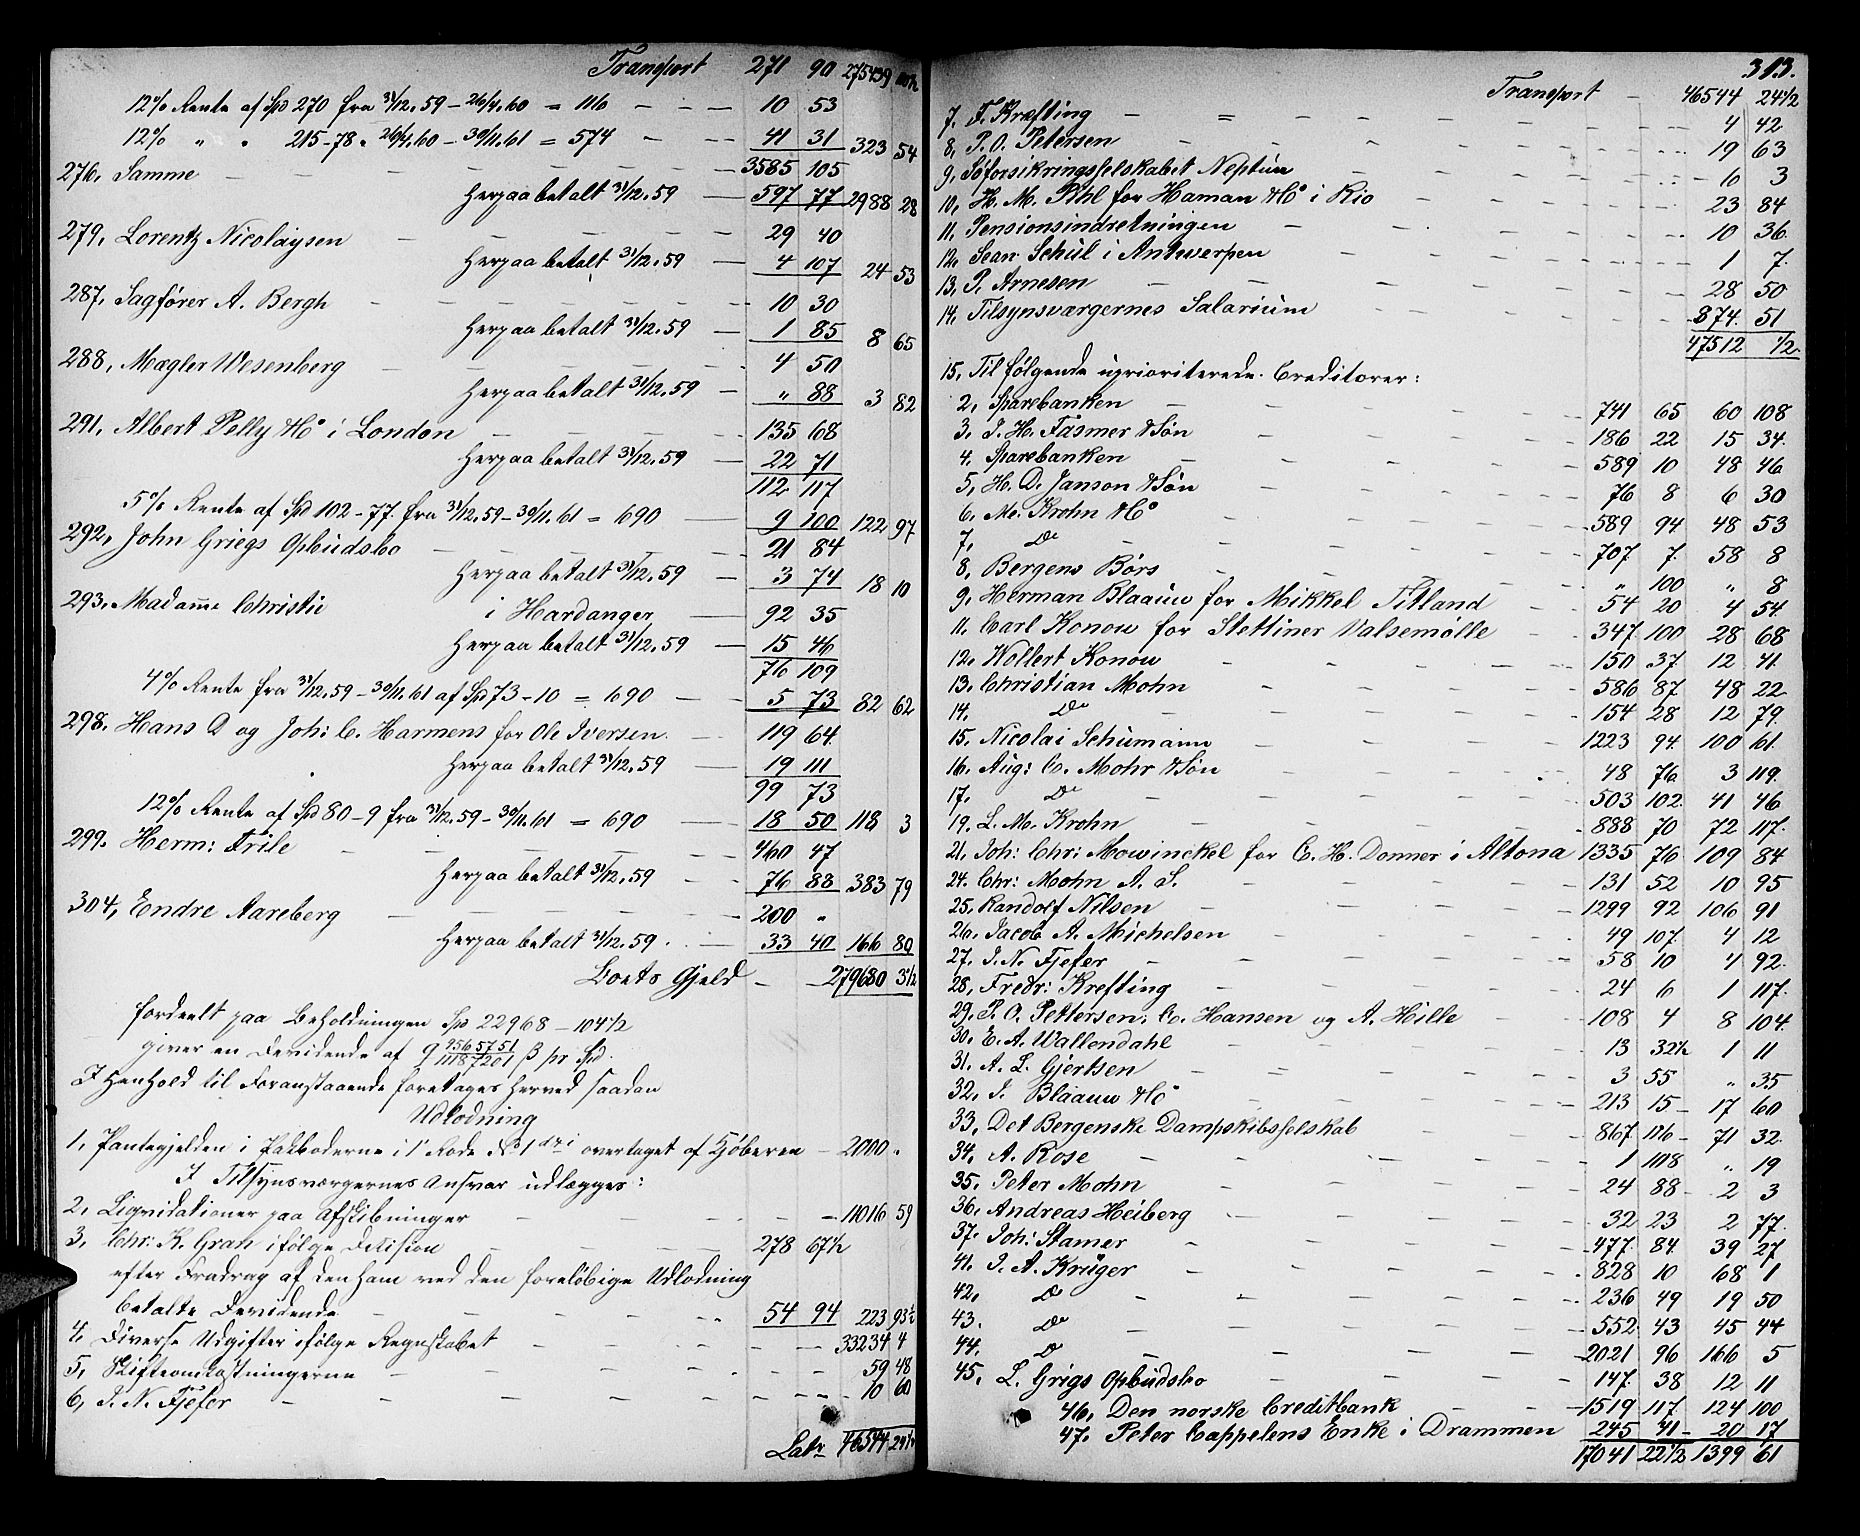 Transport 271 90 275439
12% Rente af Spd 270 fra 31/12.59 – 26/4.60 = 116 – 10 53
12% " " 215–78 " 26/4.60 – 30/11.61 = 574 – 41 31 323 54
276, Samme – 3585 105
Herpaa betalt 31/12.59 – 597 77 2988 28
279, Lorentz Nicolaysen – 29 40
Herpaa betalt 31/12.59 – 4 107 24 53
287, Sagfører A. Bergh – 10 30
Herpaa betalt 31/12.59 – 1 85 8 65
288, Mægler Wesenberg – 4 50
Herpaa betalt 31/12.59 – " 88 3 82
291, Albert Pelly & Co i London – 135 68
Herpaa betalt 31/12.59 – 22 71
112 117
5% Rente af Spd 102–77 fra 31/12.59 – 30/11.61 = 690 – 9 100 122 97
292, John Griegs Opbudsbo – 21 84
Herpaa betalt 31/12.59 – 3 74 18 10
293, Madame Christie i Hardanger – 92 35
Herpaa betalt 31/12.59 – 15 46
76 109
4% Rente fra 31/12.59 – 30/11.61 af Spd 73–10 = 690 – 5 73 82 62
298. Hans D og Joh: C. Harmens for Ole Iversen – 119 64
Herpaa betalt 31/12.59 – 19 111
99 73
12% Rente af Spd 80–9 fra 31/12.59 – 30/11.61 = 690 – 18 50 118 3
299. Herm: Friele – 460 47
Herpaa betalt 31/12.59 – 76 88 383 79
304, Endre Aareberg – 200 "
Herpaa betalt 31/12.59 – 33 40 166 80
Boets Gjeld – 279680 3½
fordeelt paa Beholdningen Spd 22968–104½
giver en Devidende af 9 9565751/11187201 β pr Spd.
I Henhold til Foranstaaende foretages herved saadan
Udlodning
1, Pantegjelden i Pakboderne i 1' Rode No 1 overtaget af Kjøberen – 2000 "
I Tilsynsværgernes Ansvar udlægges:
2, Liqvidationer paa Afskibninger – 11016 59
3, Chr: K. Gran ifølge Decision – 278 67½
efter Fradrag af den ham ved den foreløbige Udlodning
betalte Devidende – 54 94 223 93½
4, Diverse Udgifter ifølge Regnskabet – 33234 4
5, Skifteomkostningerne – 59 48
6, J. N. Fjefer – 10 60
Latr 46544 24½
313.
Transport – 46544 24½
7, F. Krefting – 4 42
8, P. O. Petersen – 19 63
9, Søforsikringsselskabet Neptun – 6 3
10, H. M. Pihl for Haman & Co i Rio – 23 84
11, Pensionsindretningen – 10 36
12, Jean Schul i Antwerpen – 1 7
13, P. Arnesen – 28 50
14, Tilsynsværgernes Salarium – 874 51
47512 ½
15, Til følgende uprioriterede Creditorer:
2, Sparebanken – 741 65 60 108
3, J. H. Fasmer & Søn – 186 22 15 34
4, Sparebanken – 589 10 48 46
5, H. D. Janson & Søn – 76 8 6 30
6, Me. Krohn & Co – 589 94 48 53
7, Do – 707 7 58 8
8, Bergens Børs – " 100 " 8
9, Herman Blaauw for Mikkel Titland – 54 20 4 54
11. Carl Konow for Stettiner Valsemølle – 347 100 28 68
12, Wollert Konow – 150 37 12 41
13. Christian Mohn – 586 87 48 22
14. Do – 154 28 12 79
15, Nicolai Schumann – 1223 94 100 61
16, Aug: C. Mohr & Søn – 48 76 3 119
17. Do – 503 102 41 46
19, L. M. Krohn – 888 70 72 117
21, Joh: Chr: Mowinckel for C. H. Donner i Altona 1335 76 109 84
24. Chr: Mohn A. S. – 131 52 10 95
25, Randolf Nilsen – 1299 92 106 91
26, Jacob A. Michelsen – 49 107 4 12
27, J. N. Fjefer – 58 10 4 92
28, Fredr: Krefting – 24 6 1 117
29, P. O. Pettersen, C. Hansen og A. Hille – 108 4 8 104
30, E. A. Wallendahl – 13 32½ 1 11
31, A. L. Gjertsen – 3 55 " 35
32, J. Blaauw & Co – 213 15 17 60
33, Det Bergenske Dampskibsselskab – 867 116 71 32
34, A. Rose – 1 118 " 19
35, Peter Mohn – 24 88 2 3
36, Andreas Heiberg – 32 23 2 77
37, Joh: Stamer – 477 84 39 27
41, J. A. Krüger – 828 10 68 1
42, Do – 236 49 19 50
43. Do – 552 43 45 44
44. Do – 2021 96 166 5
45, L. Grigs Opbudsbo – 147 38 12 11
46, Den norske Creditbank – 1519 117 124 100
47. Peter Cappelens Enke i Drammen – 245 41 20 17
17041 22½ 1399 61